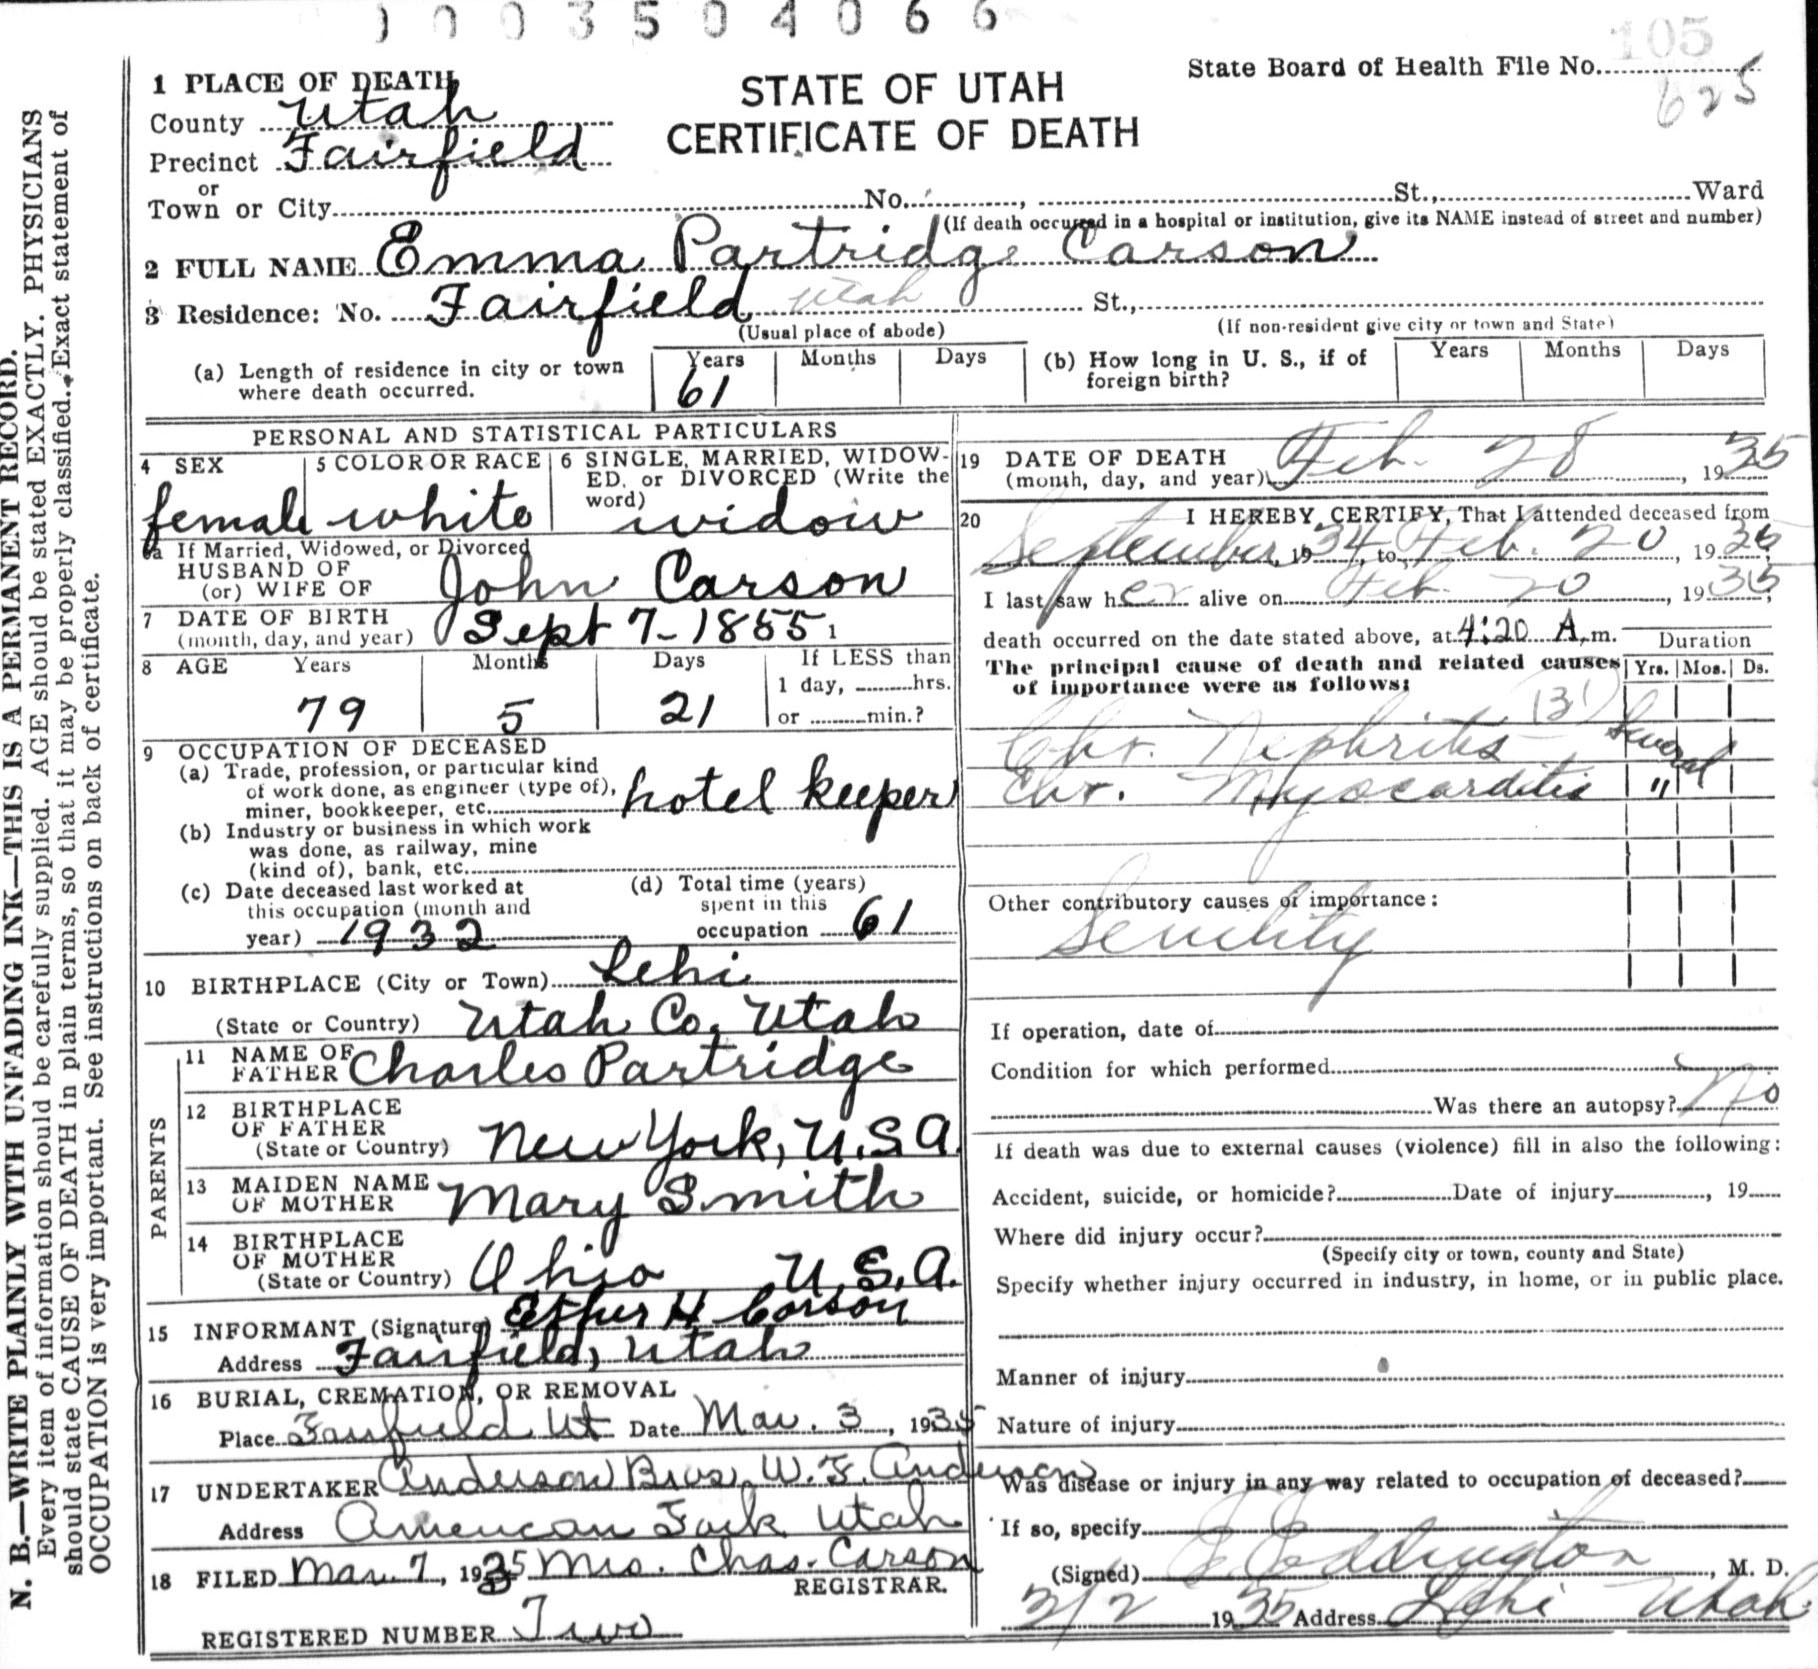 1003504066
105
State Board of Health File No.
625
STATE OF UTAH
CERTIFICATE OF DEATH
1 PLACE OF DEATH
County Utah
Precinct Fairfield
or
Town or City No. , St., Ward
(If death occurred in a hospital or institution, give its NAME instead of street and number)
2 FULL NAME Emma Partridge Carson
3 Residence: No. Fairfield Utah St.,
(Usual place of abode) (If non-resident give city or town and State)
(a) Length of residence in city or town where death occurred. Years 61 Months Days
(b) How long in U. S., if of foreign birth? Years Months Days
PERSONAL AND STATISTICAL PARTICULARS
4 SEX female
5 COLOR OR RACE white
6 SINGLE, MARRIED, WIDOW-
ED, or DIVORCED (Write the
word) widow
6a If Married, Widowed, or Divorced
HUSBAND OF
(or) WIFE OF John Carson
7 DATE OF BIRTH
(month, day, and year) Sept 7-1855 1
8 AGE Years Months Days If LESS than
79 5 21
1 day, hrs.
or min.?
9 OCCUPATION OF DECEASED
(a) Trade, profession, or particular kind
of work done, as engineer (type of),
miner, bookkeeper, etc. hotel keeper
(b) Industry or business in which work
was done, as railway, mine
(kind of), bank, etc.
(c) Date deceased last worked at
this occupation (month and
year) 1932
(d) Total time (years)
spent in this
occupation 61
10 BIRTHPLACE (City or Town) Lehi
(State or Country) Utah Co. Utah
PARENTS
11 NAME OF
FATHER Charles Partridge
12 BIRTHPLACE
OF FATHER
(State or Country) New York, U.S.A.
13 MAIDEN NAME
OF MOTHER Mary Smith
14 BIRTHPLACE
OF MOTHER
(State or Country) Ohio U.S.A.
15 INFORMANT (Signature) H Carson
Address Fairfield, Utah
16 BURIAL, CREMATION, OR REMOVAL
Place Fairfield Ut Date Mar. 3, 1935
17 UNDERTAKER Anderson Bros. W. F. Anderson
Address American Fork Utah
18 FILED Mar. 7, 1935 Mrs. Chas. Carson
REGISTRAR.
REGISTERED NUMBER Two
19 DATE OF DEATH
(month, day, and year) Feb. 28, 1935
20 I HEREBY CERTIFY, That I attended deceased from
September, 1934, to Feb. 20, 1935,
I last saw her alive on Feb. 20, 1935,
death occurred on the date stated above, at 4:20 A.m.
The principal cause of death and related causes
of importance were as follows:
Duration
Yrs. Mos. Ds.
Chr. Nephritis several
Chr. Myocarditis "
Other contributory causes of importance:
Senility
If operation, date of
Condition for which performed
Was there an autopsy? No
If death was due to external causes (violence) fill in also the following:
Accident, suicide, or homicide? Date of injury , 19
Where did injury occur?
(Specify city or town, county and State)
Specify whether injury occurred in industry, in home, or in public place.
Manner of injury
Nature of injury
Was disease or injury in any way related to occupation of deceased?
If so, specify
(Signed) Eddington, M. D.
3/2 1935 Address Lehi Utah
N. B.—WRITE PLAINLY WITH UNFADING INK—THIS IS A PERMANENT RECORD.
Every item of information should be carefully supplied. AGE should be stated EXACTLY. PHYSICIANS
should state CAUSE OF DEATH in plain terms, so that it may be properly classified. Exact statement of
OCCUPATION is very important. See instructions on back of certificate.